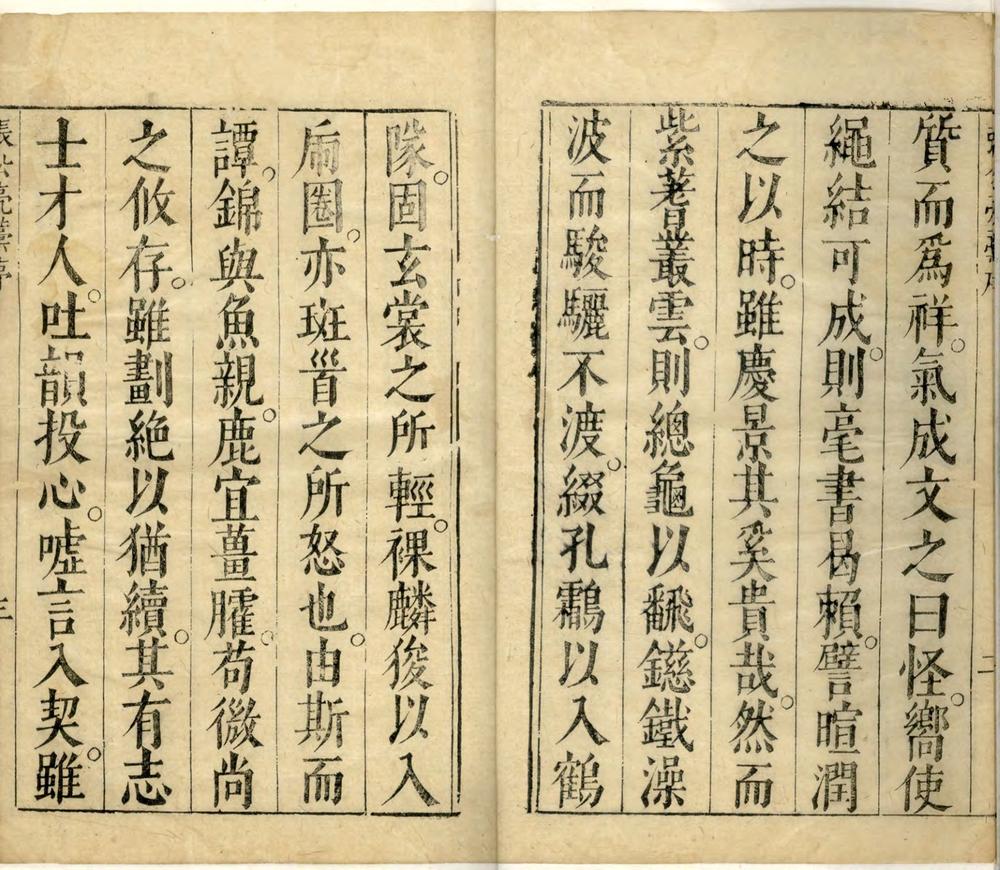 質而爲祥。氣成文之曰怪。嚮使
繩結可成。則毫書曷賴。譬暄潤
之以時。雖慶景其奚貴哉。然而
紫蓍叢雲。則總龜以飜。鎡鐵澡
波而駿驪不渡。綴孔鸘以入鶴
隊。固玄裳之所輕。裸麟狻以入
廟圈。亦斑𩠐之所怒也。由斯而
譚。錦與魚親。鹿宜薑臛。苟微尚
之攸存。雖劃絶以猶續。其有志
士才人。吐韻投心。嘘言入契。雖
三
二